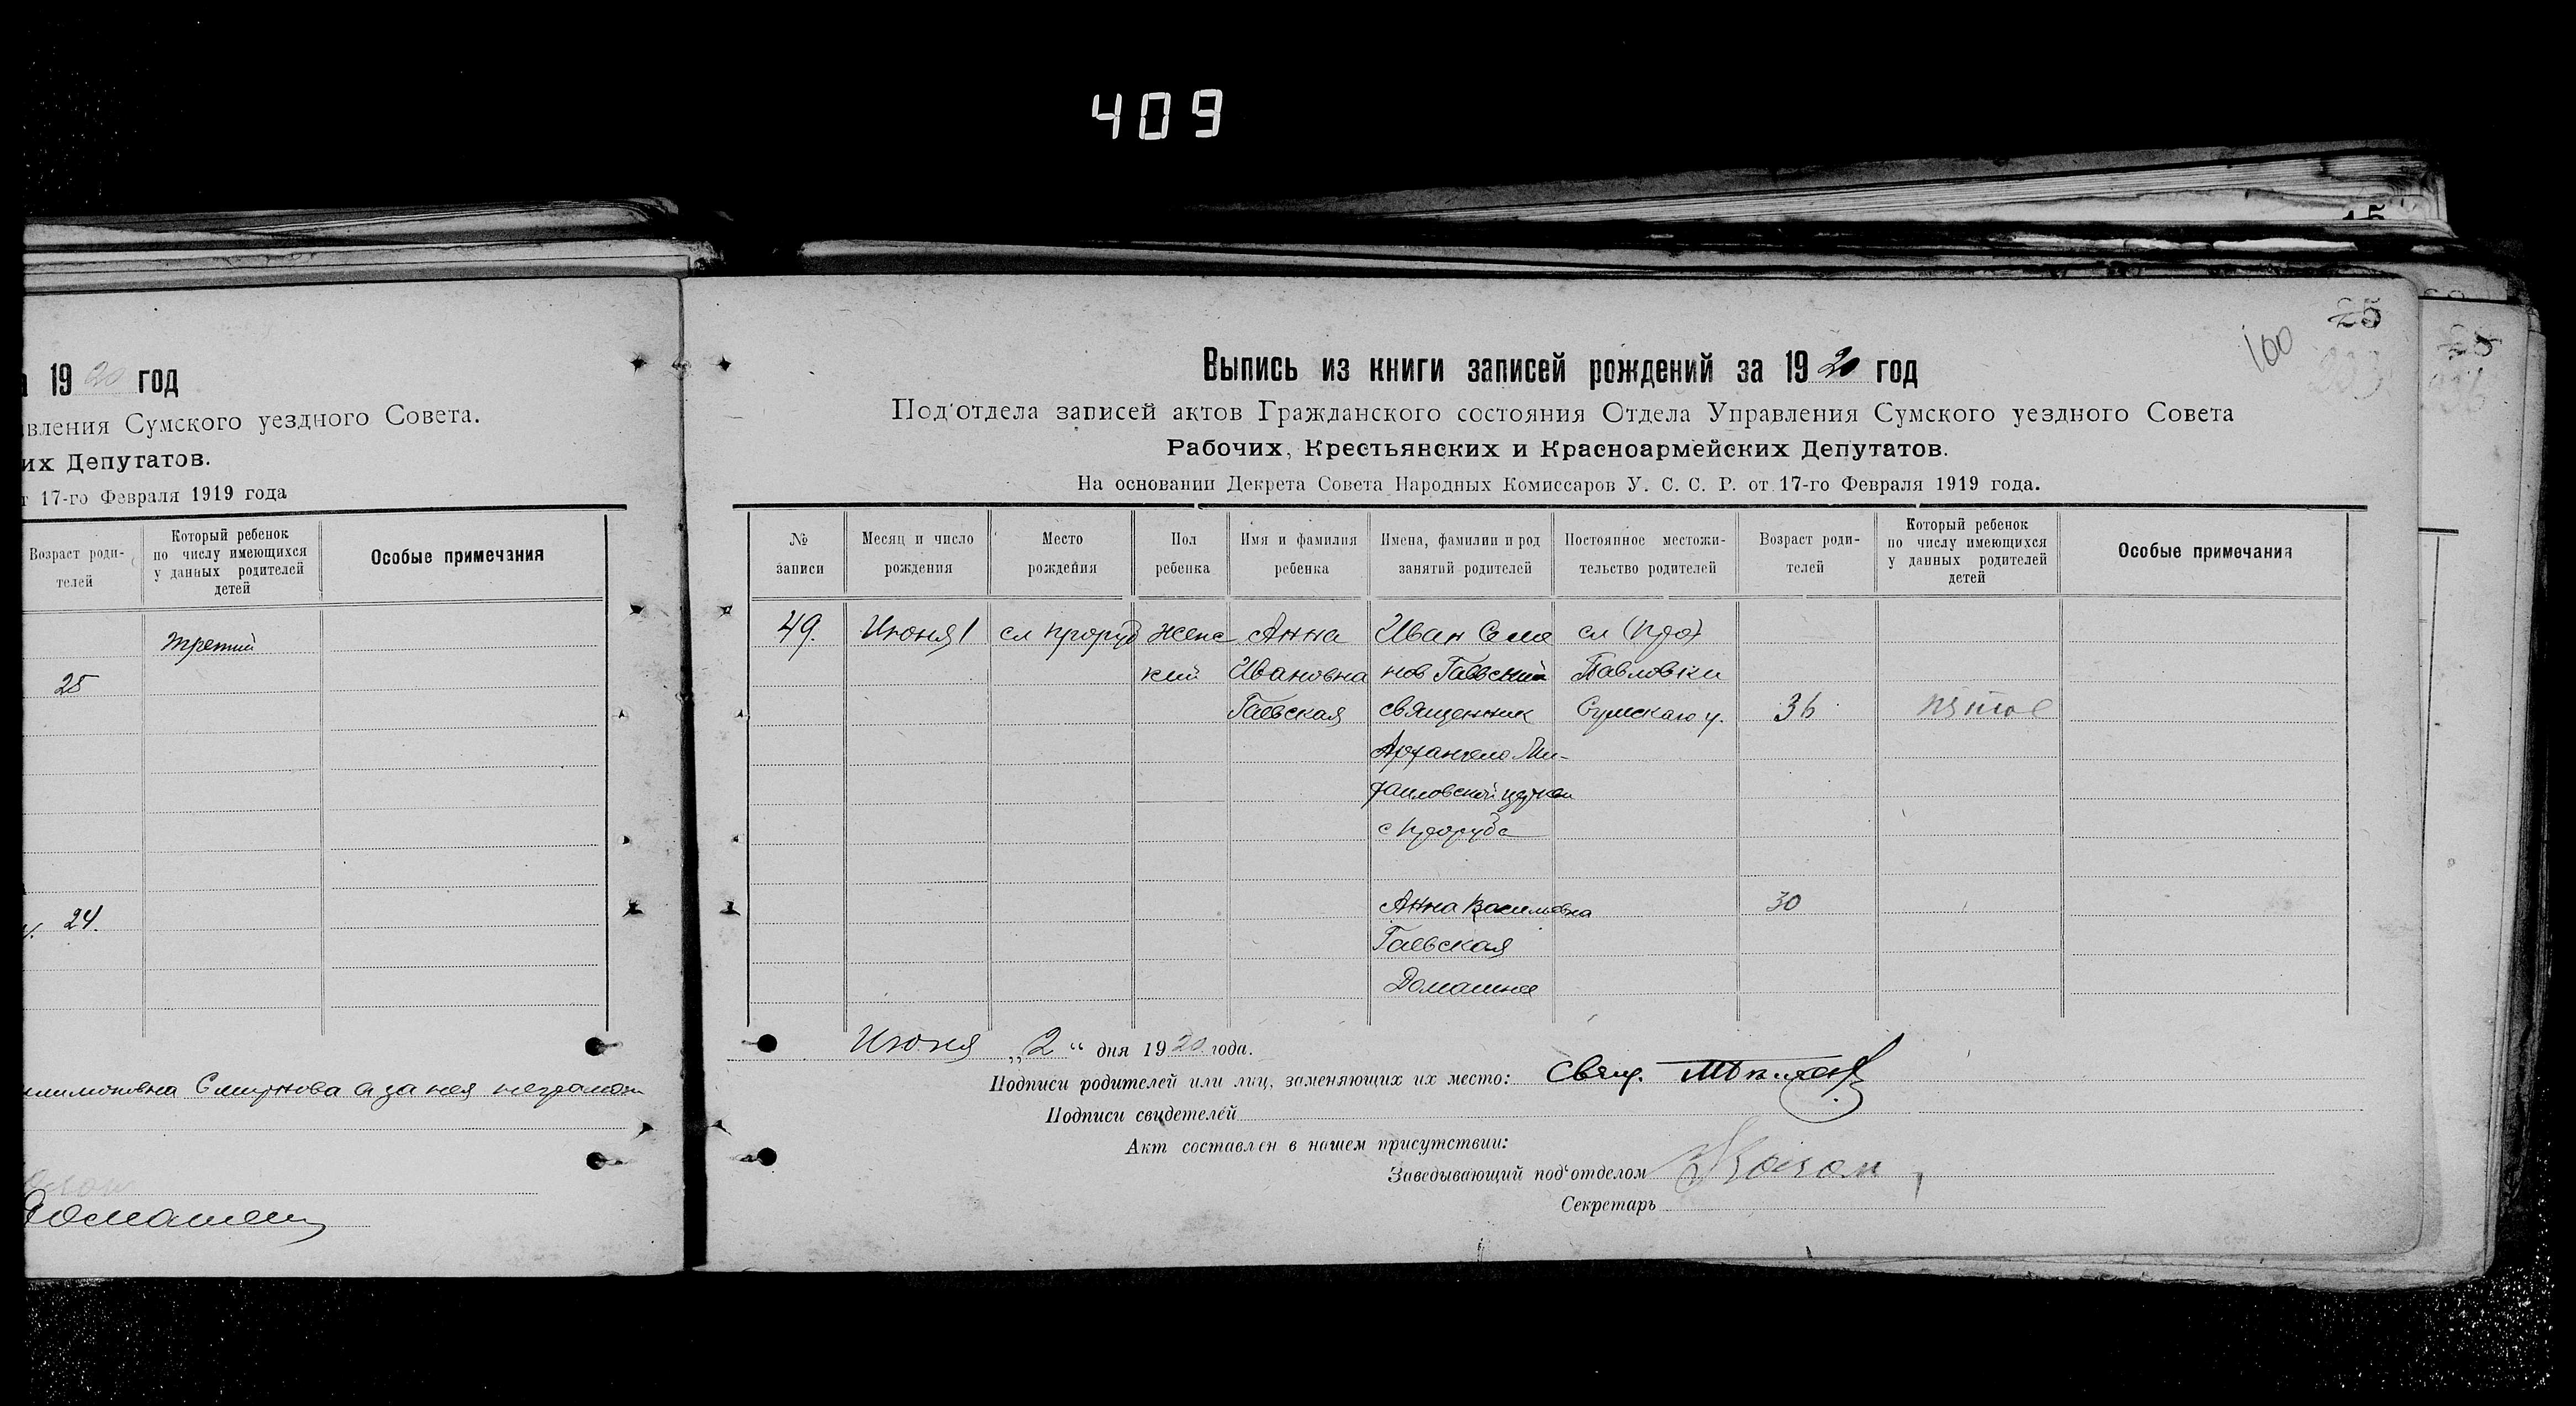 409
19 20 год
вления Сумского уездного Совета.
их Депутатов.
т 17-го Февраля 1919 года
Возраст роди-
телей
Который ребенок
по числу имеющихся
у данных родителей
детей
Особые примечания
третий
25
24.
Смирнова а за нея неграмот
25
100
Выпись из книги записей рождений за 1920 год
Под'отдела записей актов Гражданского состояния Отдела Управления Сумского уездного Совета
Рабочих, Крестьянских и Красноармейских Депутатов.
На основании Декрета Совета Народных Комиссаров У. С. С. Р. от 17-го Февраля 1919 года.
№
записи
Месяц и число
рождения
Место
рождения
Пол
ребенка
Имя и фамилия
ребенка
Имена, фамилии и род
занятий родителей
Постоянное местожи-
тельство родителей
Возраст роди-
телей
Который ребенок
по числу имеющихся
у данных родителей
детей
Особые примечания
49.
Июня 1
сл Проруб
Женс
кий
Анна
Ивановна
Гаевская
Иван Семе
нов Гаевский
священник
Архангело Ми-
хаиловской церкви
с Проруба
Анна Васильевна
Гаевская
Домашнее
сл
Павловки
Сумскаго у.
36
30
пятое
Июня „2“ дня 1920 года.
Подписи родителей или лиц, заменяющих их место: Свящ.
Подписи свидетелей
Акт составлен в нашем присутствии:
Заведывающий под'отделом
Секретарь